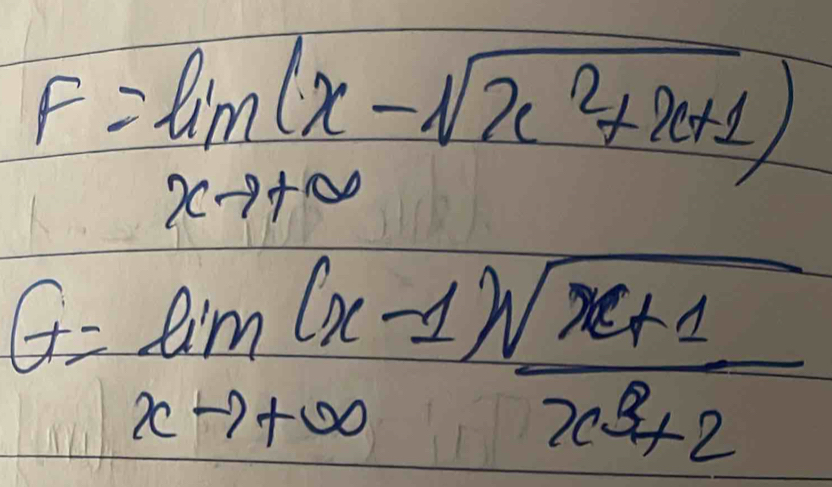 F = lim (x - √x²+x+1)
x→+∞
G = lim (x-1) √x+1
x→+∞ x³+2